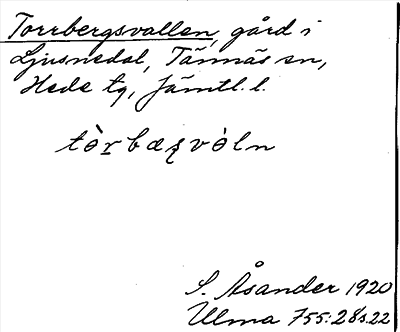 Torrbergsvallen, gård i
Ljusnedal, Tännäs sn,
Hede tg, Jämtl. l.
tòrbæʂvòln
S. Åsander 1920
Ulma 755:28 s. 22